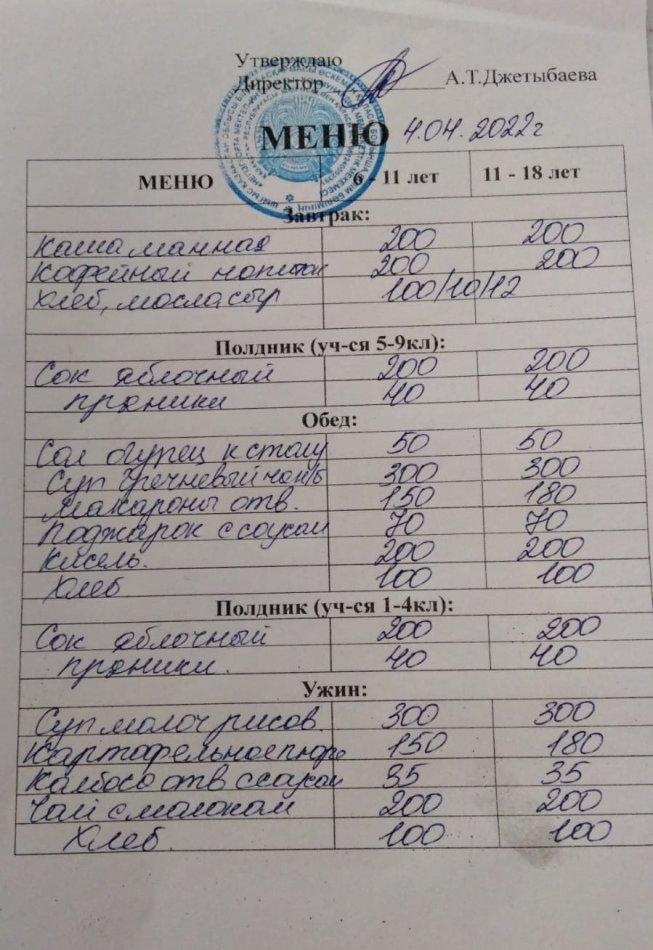 Утверждаю
Директор А.Т.Джетыбаева
МЕНЮ 4.04.2022г
МЕНЮ 6 - 11 лет 11 - 18 лет
Завтрак:
Каша манная 200 200
Кофейный напиток 200 200
Хлеб, масла сыр 100/10/12
Полдник (уч-ся 5-9кл):
Сок яблочный 200 200
пряники 40 40
Обед:
Сол огурец к столу 50 50
Суп гречневый 300 300
Макароны отв. 150 180
Поджарок с соусом 70 70
Кисель. 200 200
Хлеб 100 100
Полдник (уч-ся 1-4кл):
Сок яблочный 200 200
пряники. 40 40
Ужин:
Суп молоч рисов. 300 300
Картофельное пюре 150 180
Калбоса отв с соусом 35 35
Чай с малоком 200 200
Хлеб. 100 100